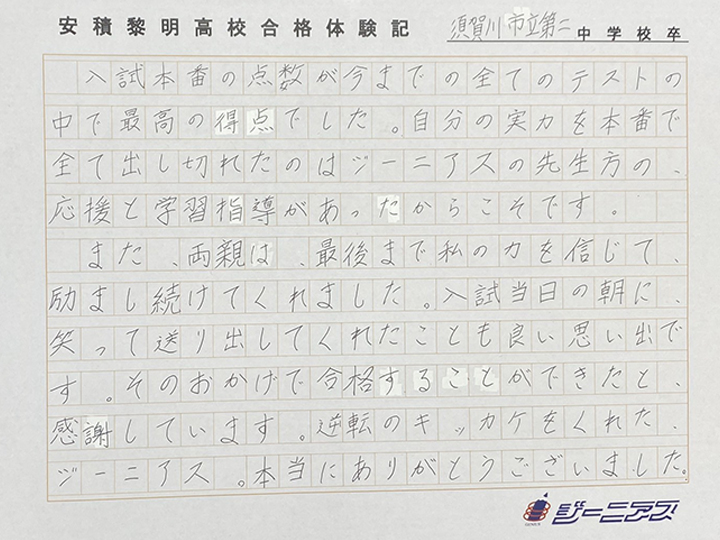 安積黎明高校合格体験記 須賀川市立第二中学校卒
入試本番の点数が今までの全てのテストの
中で最高の得点でした。自分の実力を本番で
全て出し切れたのはジーニアスの先生方の、
応援と学習指導があったからこそです。
また、両親は、最後まで私の力を信じて、
励まし続けてくれました。入試当日の朝に、
笑って送り出してくれたことも良い思い出で
す。そのおかげで合格することができたと、
感謝しています。逆転のキッカケをくれた、
ジーニアス。本当にありがとうございました。
ジーニアス